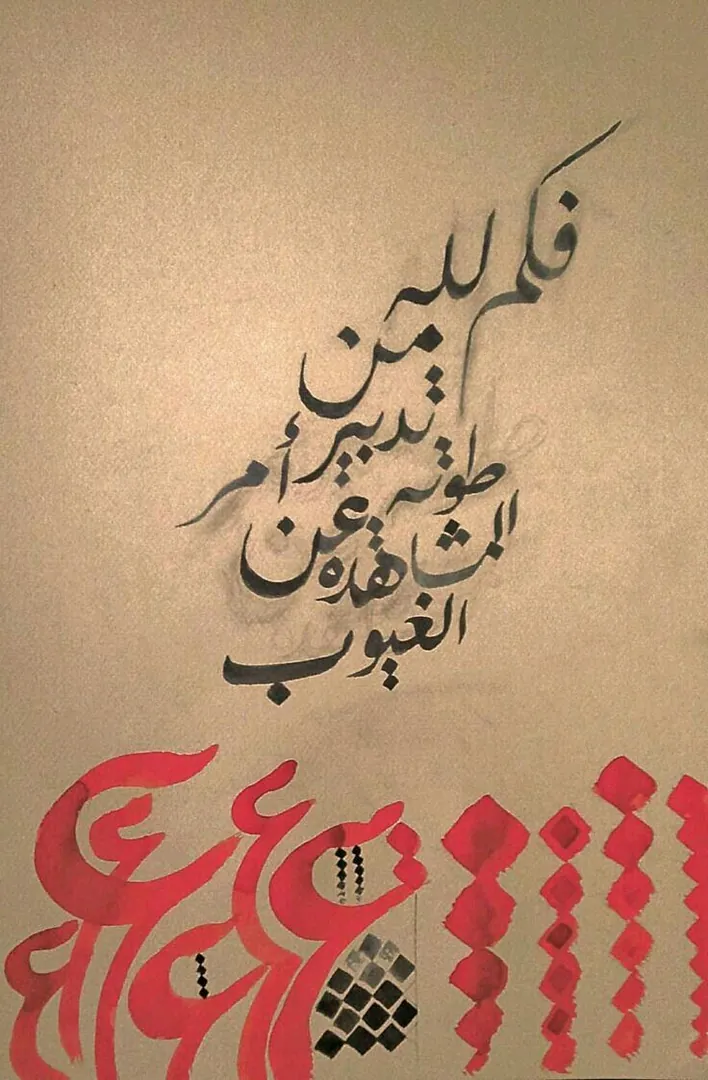 فكم لله
من
تدبير أمر
طوته عن
المشاهدة
الغيوب